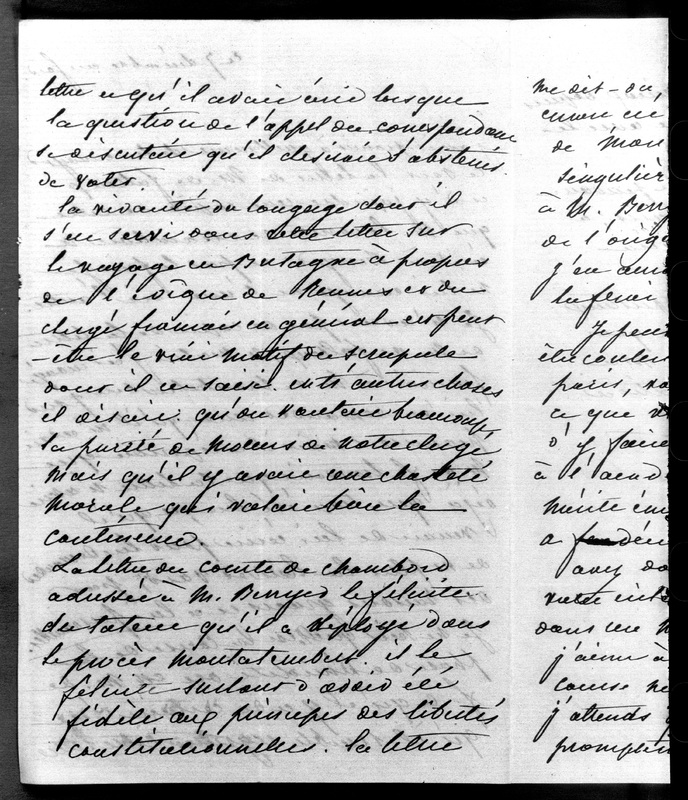 lettre et qu'il avait écrit lorsque
la question de l'appel du correspondant
se discutait qu'il désirait s'abstenir
de voter.
la vivacité du langage dont il
s'est servi dans cette lettre sur
le voyage en Bretagne à propos
de l'évêque de Rennes et du
clergé français en général est peut
-être le vrai motif du scrupule
dont il est saisi. entr'autres choses
il disait qu'on vantait beaucoup
la pureté de moeurs de notre clergé
mais qu'il y avait une chasteté
morale qui valait bien la
continence.
La lettre du comte de chambord
adressée à M. Berryer le félicite
du talent qu'il a déployé dans
le procès montalembert. il le
félicite surtout d'avoir été
fidèle aux principes des libertés
constitutionnelles. la lettre
me dit-on,
encore
de mon
singulièr
à M. Berry
de l'orig
j'en
Je peux
être
paris,
ce que
d'y faire
à l'acad
mérite
a
avez
votre
dans un
j'aime à
course
j'attends
promptem